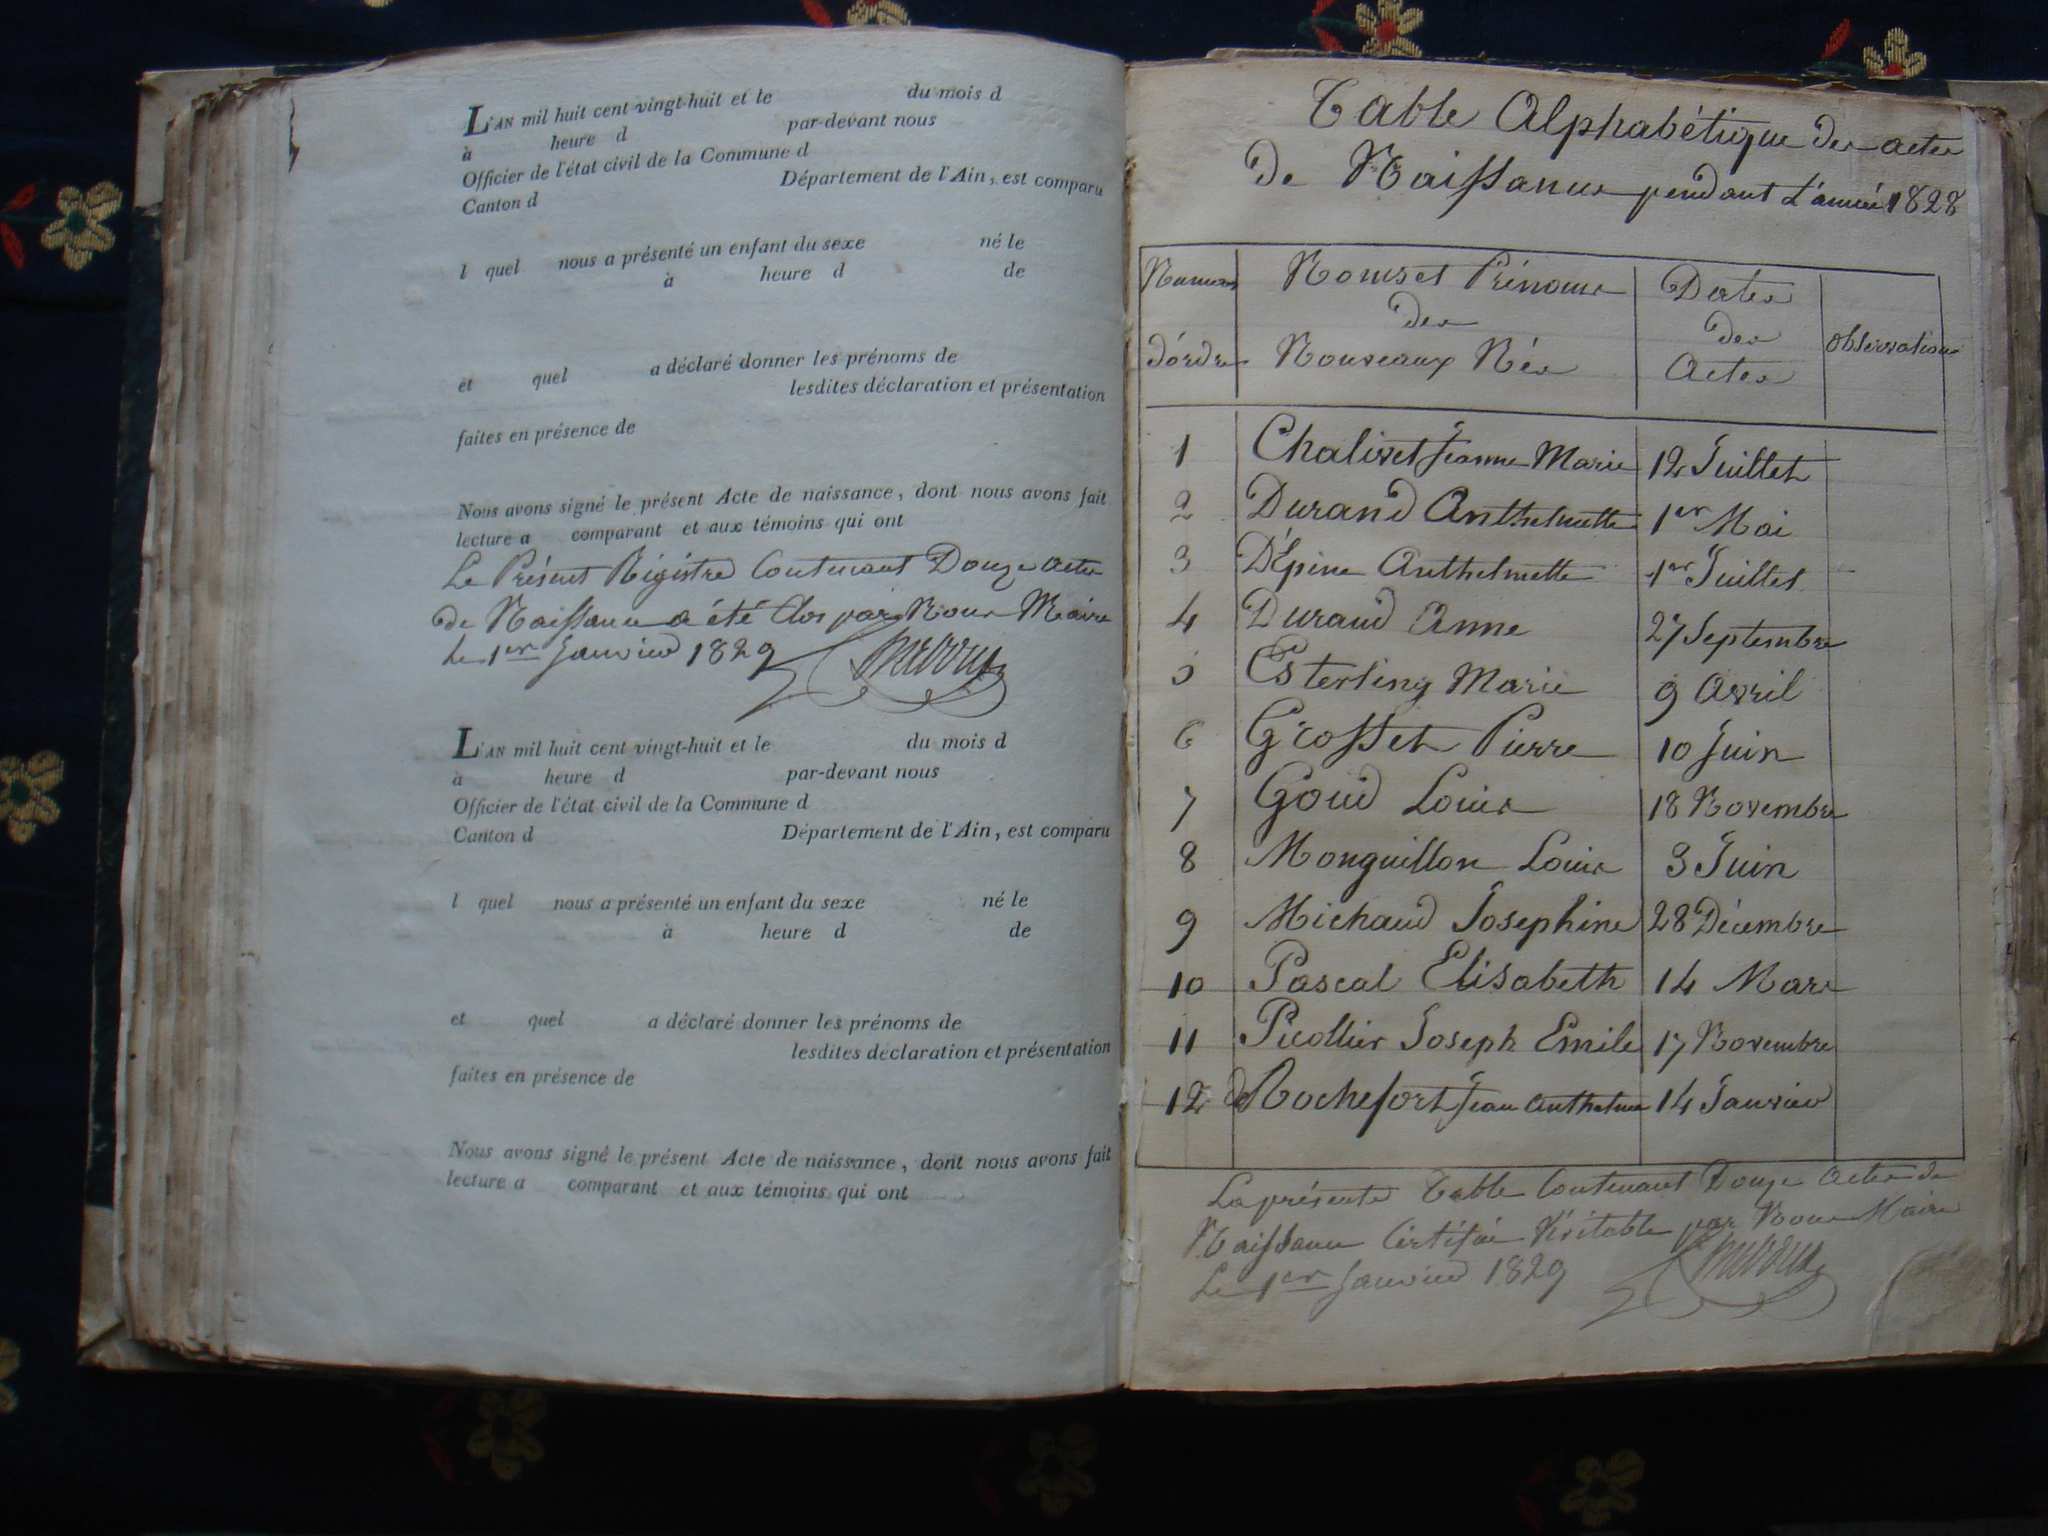 L'AN mil huit cent vingt-huit et le du mois d
à heure d par-devant nous
Officier de l'état civil de la Commune d
Canton d Département de l'Ain, est comparu
l quel nous a présenté un enfant du sexe né le
à heure d de
et quel a déclaré donner les prénoms de
lesdites déclaration et présentation
faites en présence de
Nous avons signé le présent Acte de naissance, dont nous avons fait
lecture a comparant et aux témoins qui ont
Le Présent Régistre Contenant Douze actes
de Naissance a été Clos par Nous Maire
Le 1er Janvier 1829
L'AN mil huit cent vingt-huit et le du mois d
à heure d par-devant nous
Officier de l'état civil de la Commune d
Canton d Département de l'Ain, est comparu
l quel nous a présenté un enfant du sexe né le
à heure d de
et quel a déclaré donner les prénoms de
lesdites déclaration et présentation
faites en présence de
Nous avons signé le présent Acte de naissance, dont nous avons fait
lecture a comparant et aux témoins qui ont
Table Alphabétique des actes
de Naissance pendant L'année 1828
Numéros d'ordre Noms et Prénoms des Nouveaux Nés Dates des Actes Observations
1 Chalivet Jeanne Marie 12 Juillet
2 Durand Anthelmette 1er Mai
3 D'Épine Anthelmette 1er Juillet
4 Durand Anne 27 Septembre
5 Esterling Marie 9 Avril
6 Grosset Pierre 10 Juin
7 Goud Louis 18 Novembre
8 Monguillon Louis 3 Juin
9 Michaud Josephine 28 Décembre
10 Pascal Elisabeth 14 Mars
11 Picollier Joseph Emile 17 Novembre
12 de Rochefort Jean Anthelme 14 Janvier
La présente Table Contenant Douze Actes de
Naissance Certifiée Véritable par Nous Maire
Le 1er Janvier 1829